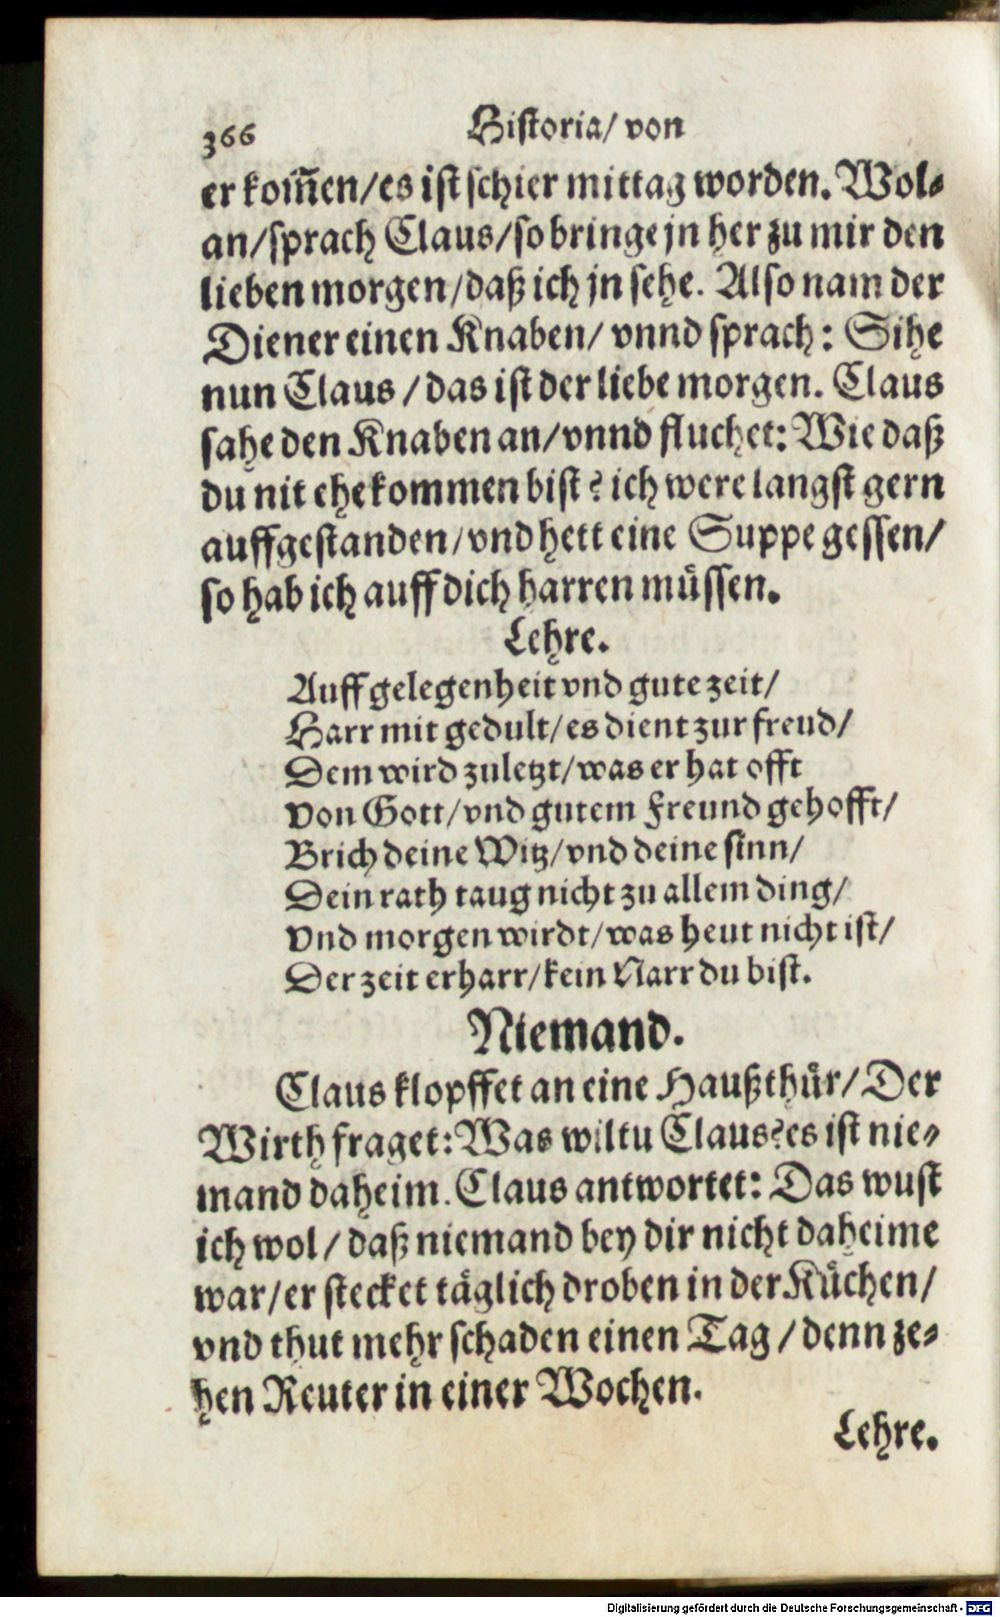 366 Historia/ von
er kom̃en/es ist schier mittag worden. Wol⸗
an/sprach Claus/so bringe jn her zu mir den
lieben morgen/daß ich jn sehe. Also nam der
Diener einen Knaben/ vnnd sprach: Sihe
nun Claus /das ist der liebe morgen. Claus
sahe den Knaben an/vnnd fluchet: Wie daß
du nit ehe kommen bist? ich were langst gern
auffgestanden/vnd hett eine Suppe gessen/
so hab ich auff dich harren müssen.
Lehre.
Auff gelegenheit vnd gute zeit/
Harr mit gedult/es dient zur freud/
Dem wird zuletzt/was er hat offt
Von Gott/vnd gutem Freund gehofft/
Brich deine Witz/vnd deine sinn/
Dein rath taug nicht zu allem ding/
Vnd morgen wirdt/was heut nicht ist/
Der zeit erharr/kein Narr du bist.
Niemand.
Claus klopffet an eine Haußthür/ Der
Wirth fraget: Was wiltu Claus? es ist nie⸗
mand daheim. Claus antwortet: Das wust
ich wol/ daß niemand bey dir nicht daheime
war/er stecket täglich droben in der Küchen/
vnd thut mehr schaden einen Tag /denn ze⸗
hen Reuter in einer Wochen.
Lehre.
Digitalisierung gefördert durch die Deutsche Forschungsgemeinschaft - DFG